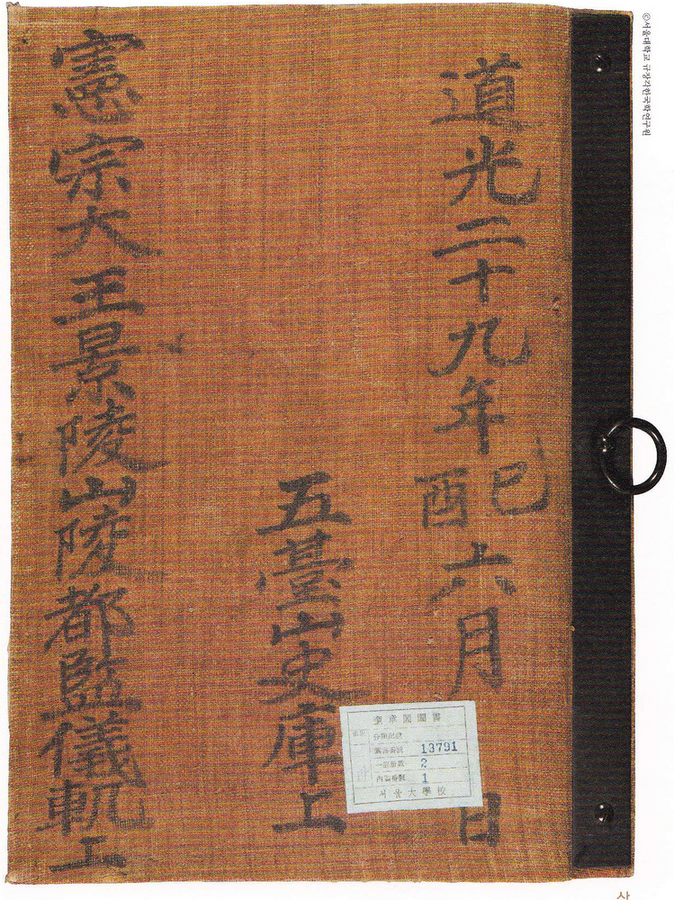 ©서울대학교 규장각한국학연구원
道光二十九年己酉六月 日
五臺山史庫上
憲宗大王景陵山陵都監儀軌上
奎章閣圖書
13791
2
1
서울大學校